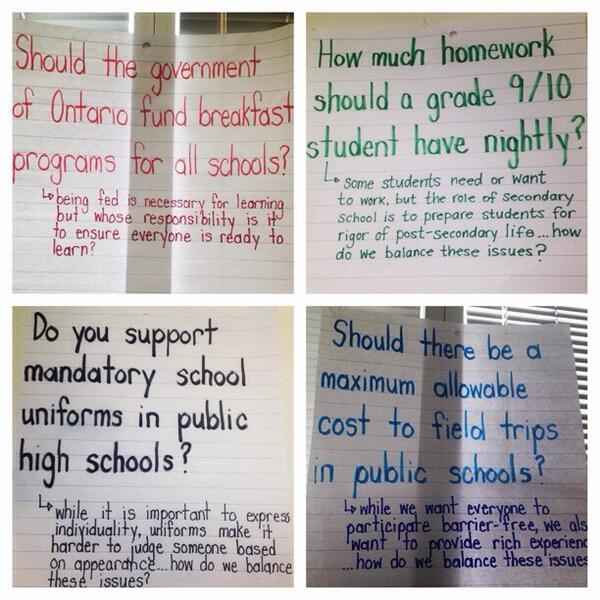 Should the government
of Ontario fund breakfast
programs for all schools?
↳ being fed is necessary for learning
but whose responsibility is it
to ensure everyone is ready to
learn?
How much homework
should a grade 9/10
student have nightly?
↳ Some students need or want
to work, but the role of secondary
school is to prepare students for
rigor of post-secondary life...how
do we balance these issues?
Do you support
mandatory school
uniforms in public
high schools?
↳ while it is important to express
individuality, uniforms make it
harder to judge someone based
on appearance...how do we balance
these issues?
Should there be a
maximum allowable
cost to field trips
in public schools?
↳ while we want everyone to
participate barrier-free, we als
want to provide rich experienc
...how do we balance these issues